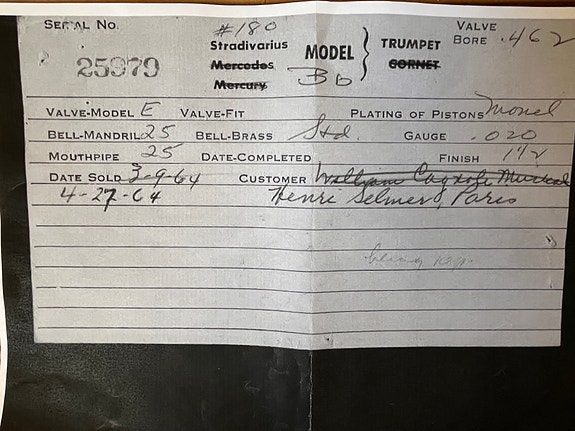 SERIAL NO. #180 VALVE
Stradivarius MODEL TRUMPET BORE .462
25979 Mercedes Bb CORNET
Mercury
VALVE-MODEL E VALVE-FIT PLATING OF PISTONS Monel
BELL-MANDRIL 25 BELL-BRASS Std. GAUGE .020
MOUTHPIPE 25 DATE-COMPLETED FINISH 1 1/2
DATE SOLD 3-9-64 CUSTOMER William Musical
4-27-64 Henri Selmer, Paris